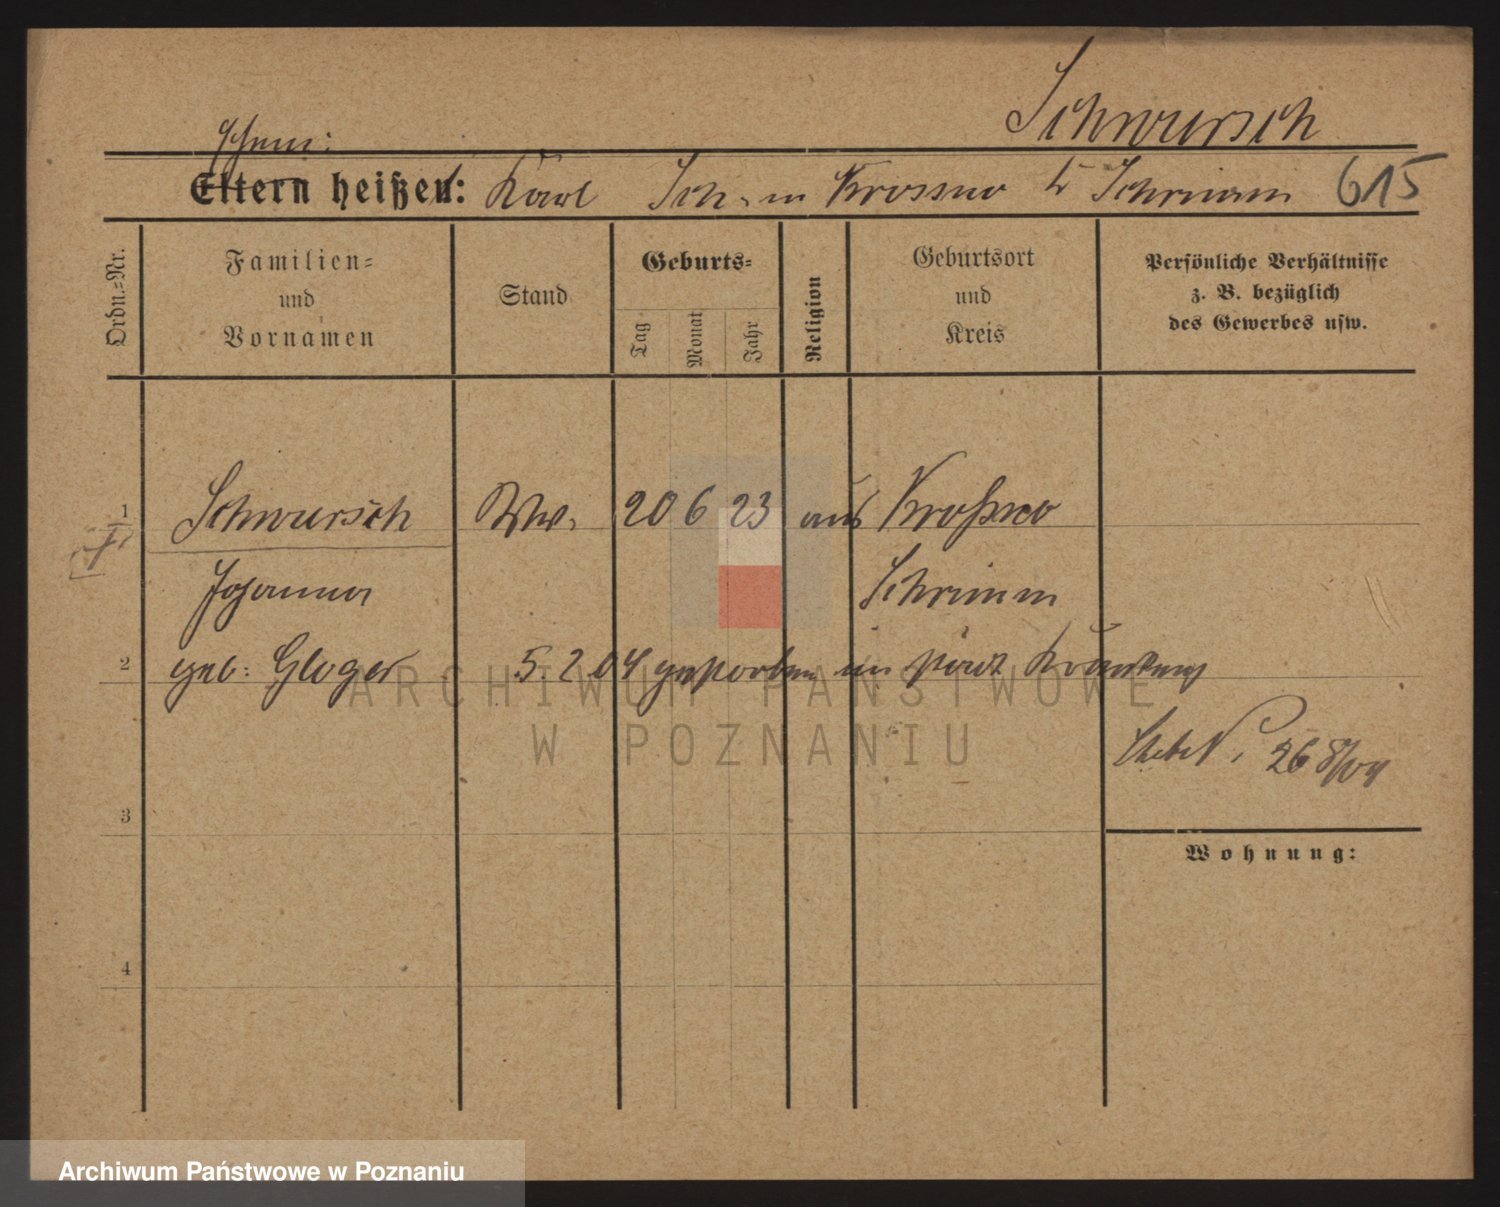 Schwursch
Ehem:
Eltern heißen: Karl Sch. in Krossno Kr Schrimm 615
Ordn.-Nr.
Familien-
und
Vornamen
Stand
Geburts-
Tag
Monat
Jahr
Religion
Geburtsort
und
Kreis
Persönliche Verhältnisse
z. B. bezüglich
des Gewerbes usw.
1 Schwursch Ww. 20 6 23 aus Kroßno
Johanna Schrimm
2 geb: Gloger 5. 2. 04 gestorben im städt Krankenh
26 8/04
3
Wohnung:
4
ARCHIWUM PAŃSTWOWE
W POZNANIU
Archiwum Państwowe w Poznaniu